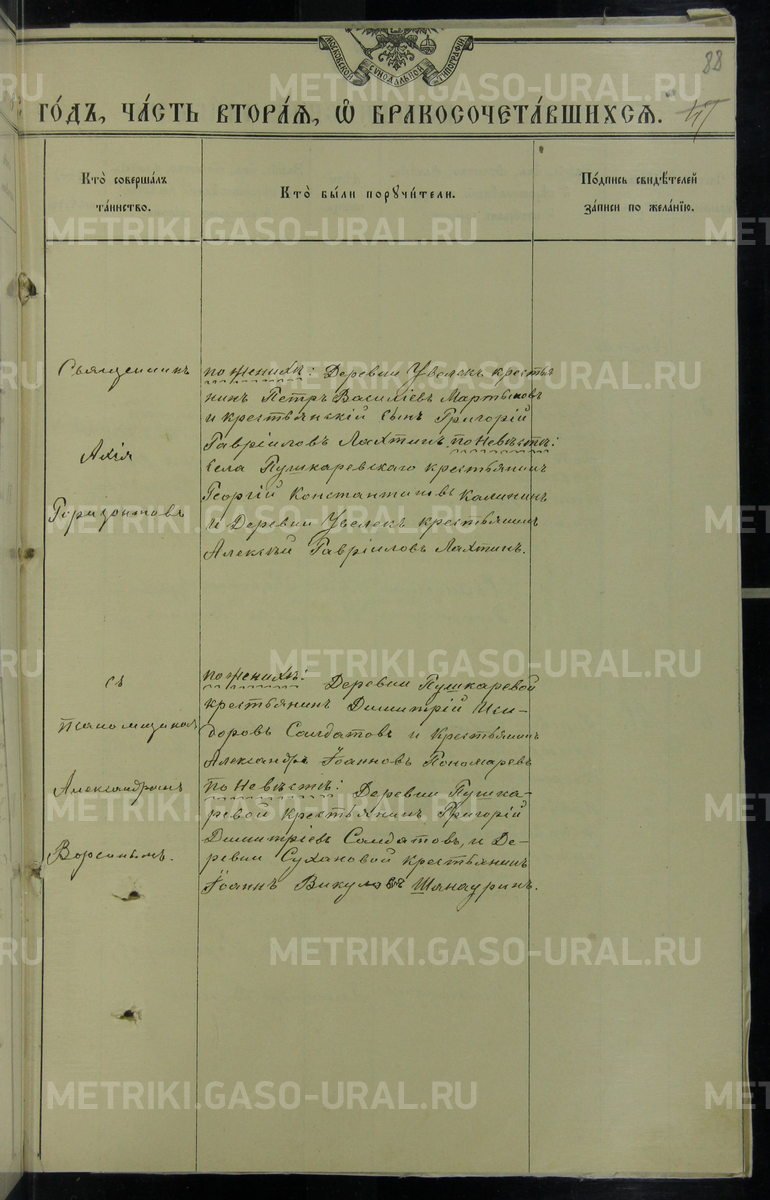 МОСКОВСКОЙ СѴНОДАЛЬНОЙ ТИПОГРАФІИ
88
ГО́ДЪ, ЧА́СТЬ ВТОРА́Я, Ѽ БРАКОСОЧЕТА́ВШИХСЯ.
47
Кто̀ соверша́лъ
та́инство.
Кто̀ бы́ли порꙋчи́тели.
По́дпись свидѣ́телей
за́писи по жела́нїю.
Священникъ
Ахія
Горизонтовъ
по женихѣ: Деревни Увелекъ крестья
нинъ Петръ Василіевъ Мартыновъ
и крестьянскій сынъ Григорій
Гавріиловъ Лахтинъ, по невѣстѣ:
Села Пушкаревскаго крестьянинъ
Георгій Константиновъ Калининъ
и Деревни Увелекъ крестьянинъ
Алексѣй Гавріиловъ Лахтинъ.
съ
псаломщикомъ
Александромъ
по женихѣ: Деревни Пушкаревой
крестьянинъ Димитрій Иси-
доровъ Солдатовъ и крестьянинъ
Александръ Іоанновъ Пономаревъ
по невѣстѣ: Деревни Пушка-
ревой крестьянинъ Григорій
Димитріевъ Солдатовъ, и Де-
ревни Сухановой крестьянинъ
Іоаннъ Викуловъ Шянауринъ.
METRIKI.GASO-URAL.RU